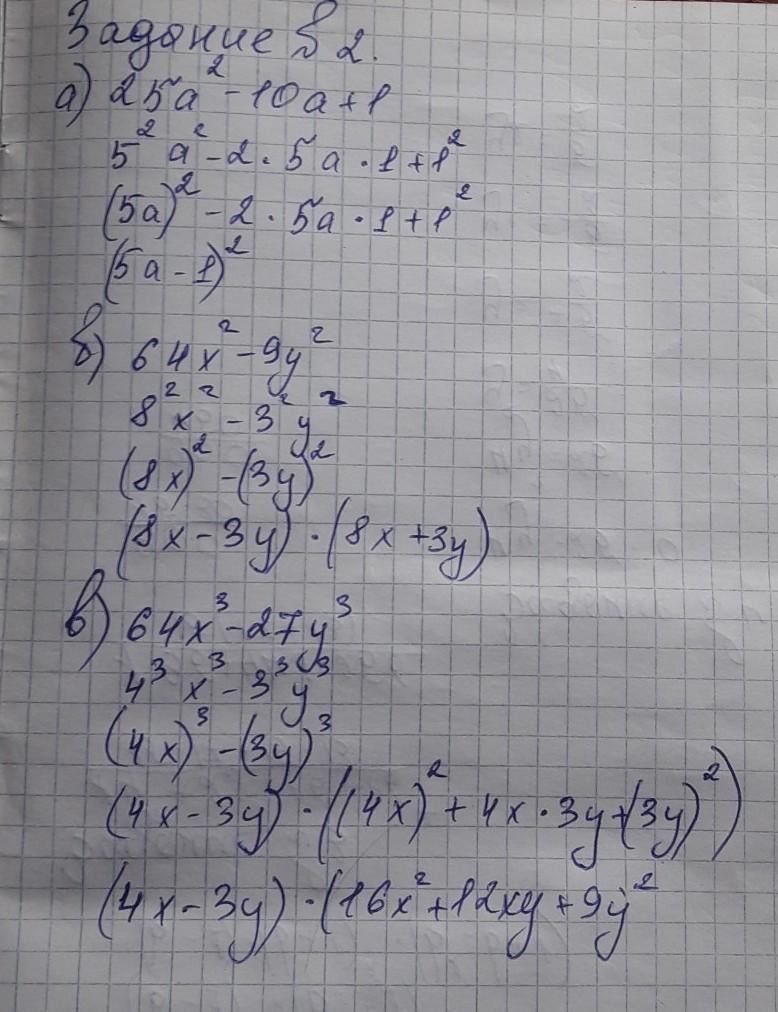 Задание №2.
а) 25a² - 10a + 1
5² a² - 2 · 5a · 1 + 1²
(5a)² - 2 · 5a · 1 + 1²
(5a - 1)²
б) 64x² - 9y²
8² x² - 3² y²
(8x)² - (3y)²
(8x - 3y) · (8x + 3y)
в) 64x³ - 27y³
4³ x³ - 3³ y³
(4x)³ - (3y)³
(4x - 3y) · ((4x)² + 4x · 3y + (3y)²)
(4x - 3y) · (16x² + 12xy + 9y²